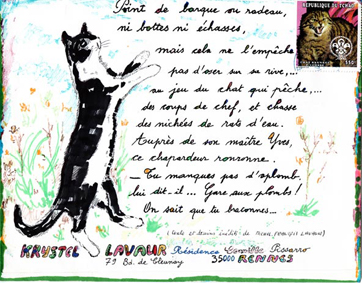 Point de barque ou radeau,
ni bottes ni échasses,
mais cela ne l'empêche
pas d'oser sur sa rive,...
au jeu du chat qui pêche,...
des coups de chef, et chasse
des nichées de rats d'eau.
Auprès de son maître Yves,
ce chapardeur ronronne.
— Tu manques pas d'aplomb,
lui dit-il... Gare aux plombs!
On sait que tu braconnes...
(texte et dessins inédits de
KRYSTEL LAVAUR Résidence Camille Pissarro
79 Bd. de Cleunay 35000 RENNES
REPUBLIQUE DU TCHAD